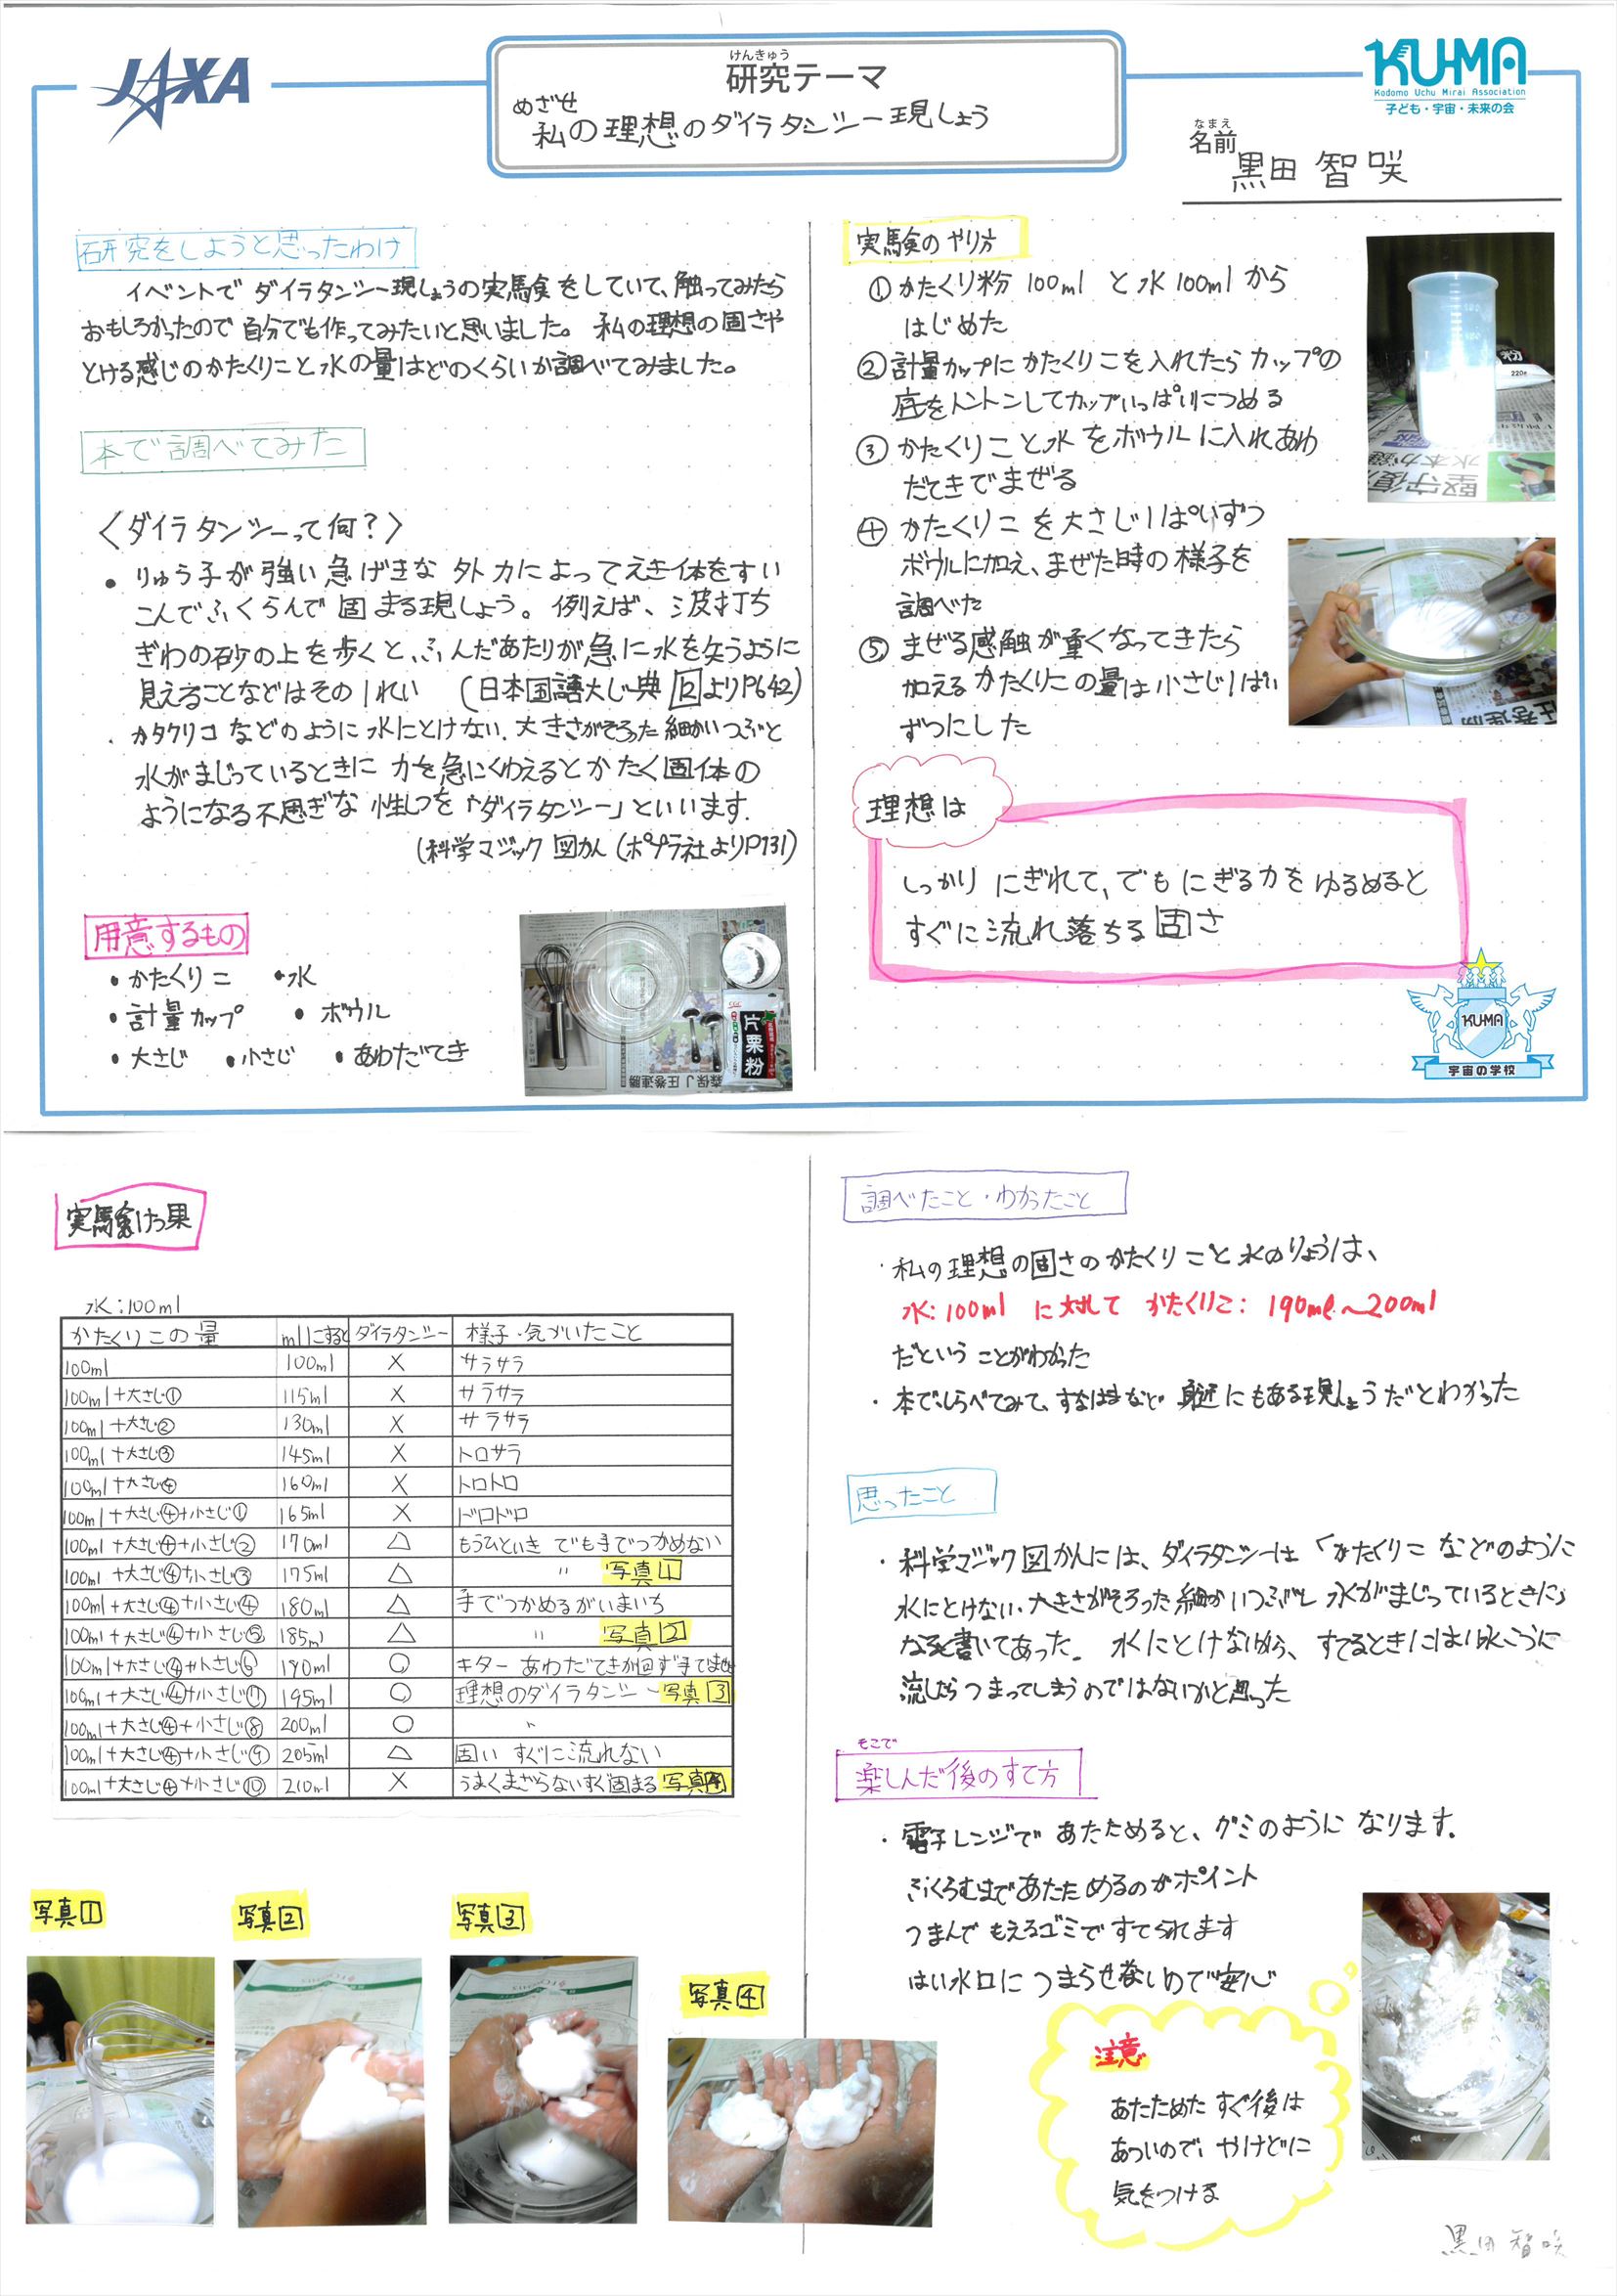 JAXA
けんきゅう
研究テーマ
めざせ
私の理想のダイラタンシー現しょう
KU-MA
Kodomo Uchu Mirai Association
子ども・宇宙・未来の会
なまえ
名前
黒田 智咲
研究をしようと思ったわけ
イベントで ダイラタンシー現しょうの実験をしていて、触ってみたら
おもしろかったので 自分でも作ってみたいと思いました。 私の理想の固さや
とける感じのかたくりこと水の量はどのくらいか調べてみました。
本で調べてみた
〈ダイラタンシーって何?〉
• りゅう子が強い急げきな外力によってえき体をすい
こんでふくらんで固まる現しょう。例えば、波打ち
ぎわの砂の上を歩くと、ふんだあたりが急に水を失うように
見えることなどはその1れい (日本国語大じ典 12よりP642)
・カタクリコなどのように水にとけない、大きさがそろった細かいつぶと
水がまじっているときに力を急にくわえるとかたく固体の
ようになる不思ぎな性しつを「ダイラタンシー」といいます。
(科学マジック図かん (ポプラ社よりP131)
用意するもの
• かたくりこ •水
• 計量カップ • ボウル
• 大さじ •小さじ • あわだてき
CGC
片栗粉
森保J 圧巻連勝
実験のやり方
① かたくり粉 100ml と水 100ml から
はじめた
② 計量カップにかたくりこを入れたらカップの
底をトントンしてカップいっぱいにつめる
③ かたくりこと水をボウルに入れあわ
だてきでまぜる
④ かたくりこを大さじ1ぱいずつ
ボウルに加え、まぜた時の様子を
調べた
⑤ まぜる感触が重くなってきたら
加えるかたくりこの量は小さじ1ぱい
ずつにした
粉
220g
理想は
しっかり にぎれて、でもにぎる力をゆるめると
すぐに流れ落ちる固さ
KU-MA
宇宙の学校
実験けっ果
水:100ml
かたくりこの量 mlにすると ダイラタンシー 様子・気づいたこと
100ml 100ml × サラサラ
100ml+大さじ① 115ml × サラサラ
100ml+大さじ② 130ml × サラサラ
100ml+大さじ③ 145ml × トロサラ
100ml+大さじ④ 160ml × トロトロ
100ml+大さじ④+小さじ① 165ml × ドロドロ
100ml+大さじ④+小さじ② 170ml △ もうひといき でも手でつかめない
100ml+大さじ④+小さじ③ 175ml △ 〃 写真1
100ml+大さじ④+小さじ④ 180ml △ 手でつかめるがいまいち
100ml+大さじ④+小さじ⑤ 185ml △ 〃 写真2
100ml+大さじ④+小さじ⑥ 190ml ○ キター あわだてきが回ず手でまぜ
100ml+大さじ④+小さじ⑦ 195ml ○ 理想のダイラタンシー 写真3
100ml+大さじ④+小さじ⑧ 200ml ○ 〃
100ml+大さじ④+小さじ⑨ 205ml △ 固い すぐに流れない
100ml+大さじ④+小さじ⑩ 210ml × うまくまざらないすぐ固まる 写真4
写真1
写真2
写真3
写真4
調べたこと・わかったこと
・私の理想の固さのかたくりこと水のりょうは、
水:100ml に対して かたくりこ:190ml~200ml
だということがわかった
・本でしらべてみて、すなはまなど身近にもある現しょうだとわかった
思ったこと
・科学マジック図かんには、ダイラタンシーは「かたくりこなどのように
水にとけない、大きさがそろった細かいつぶと水がまじっているときに」
なると書いてあった。水にとけないから、すてるときにはい水こうに
流したらつまってしまうのではないかと思った
そこで
楽しんだ後のすて方
・電子レンジであたためると、グミのようになります。
ふくろむまであたためるのがポイント
つまんでもえるゴミですてられます
はい水口につまらせないので安心
注意
あたためた すぐ後は
あついので、やけどに
気をつける
黒田 智咲